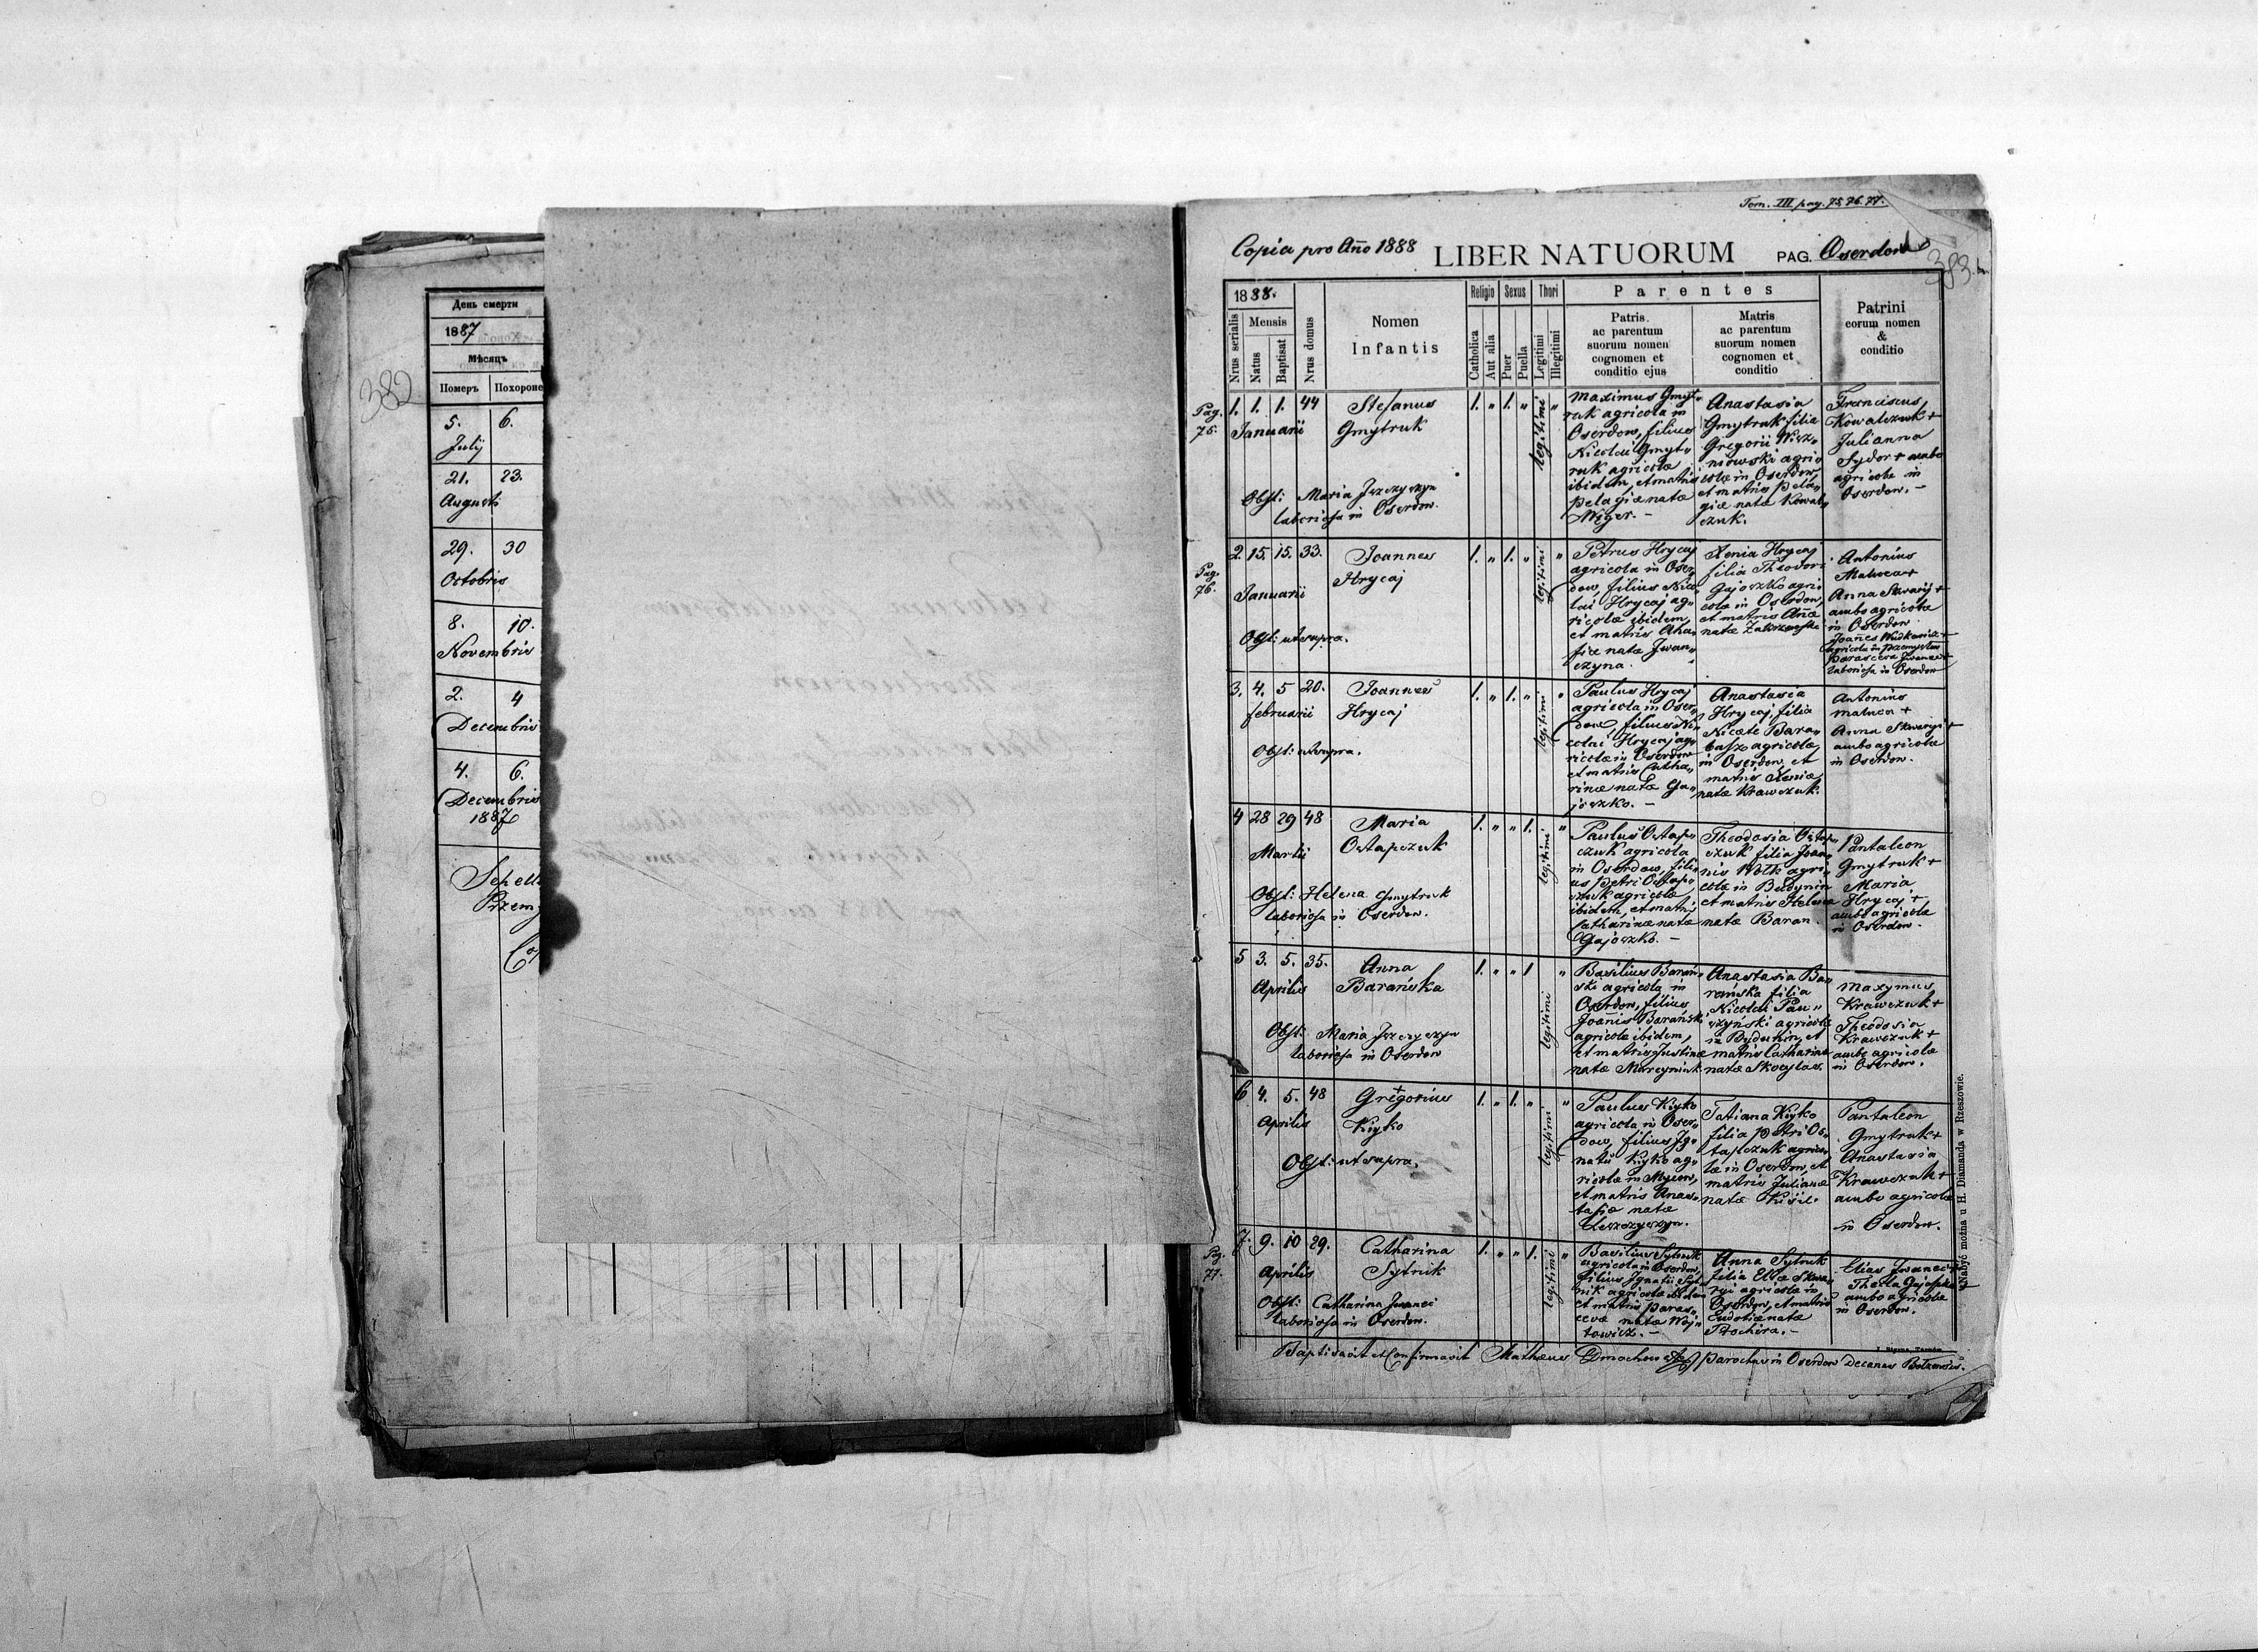 382
День смерти
1887
Мѣсяцъ
Померъ Похороне
5. 6.
Julij
21. 23.
Augusti
29. 30
Octobris
8. 10.
Novembris
2. 4
Decembris
4. 6.
Decembris
1887
Przem
Tom. III pag. 75, 76. 77.
Copia pro Año 1888 LIBER NATUORUM PAG. Oserdow
383
1888.
Nrus serialis
Mensis
Natus
Baptisat
Nrus domus
Nomen
Infantis
Religio
Catholica
Aut alia
Sexus
Puer
Puella
Thori
Legitimi
Illegitimi
Parentes
Patris
ac parentum
suorum nomen
cognomen et
conditio ejus
Matris
ac parentum
suorum nomen
cognomen et
conditio
Patrini
eorum nomen
&
conditio
Pag.
75.
1. 1. 1. 44
Januarii
Stefanus
Gmytruk
Obst: Maria Jszczyszyn
laboriosa in Oserdow.
1. „ 1. „
legitimi
„
Maximus Gmyt„
ruk agricola in
Oserdow, filius
Nicolai Gmyt„
ruk agricolæ
ibidem, et matris
Pelagiæ natæ
Węger. –
Anastasia
Gmytruk filia
Gregorii Wisz„
niowski agri„
colæ in Oserdow,
et matris Pela„
giæ natæ Kowal„
czuk.
Franciscus
Kowalczuk +
Julianna
Sydor + ambo
agricolæ in
Oserdow. –
Pag.
76.
2. 15. 15. 33.
Januarii
Joannes
Hrycaj
Obst: ut supra.
1. „ 1. „
legitimi
„
Petrus Hrycaj
agricola in Oser„
dow, filius Nico„
lai Hrycaj ag„
ricolæ ibidem,
et matris Aha„
fiæ natæ Jwan„
czyna.
Xenia Hrycaj
filia Theodori
Gajoszko agri„
colæ in Oserdow,
et matris Añæ
natæ
Antonius
Matwca +
Anna Skwaryj +
ambo agricolæ
in Oserdow
agricola in Przemysłow
laboriosa in Oserdow
3. 4. 5 20.
februarii
Joannes
Hrycaj
Obst: ut supra.
1. „ 1. „
legitimi
„
Paulus Hrycaj
agricola in Oser„
dow, filius Ni„
colai Hrycaj ag„
ricolæ in Oserdow
et matris Catha„
rinæ natæ Ga„
joszko. –
Anastasia
Hrycaj, filia
Nicetæ Bara„
basz agricolæ
in Oserdow, et
matris Xeniæ
natæ Krawczuk.
Antonius
Matwca +
Anna Skwaryj +
ambo agricolæ
in Oserdow.
4 28 29 48
Martii
Maria
Ostapczuk
Obst: Helena Gmytruk
laboriosa in Oserdow.
1. „ „ 1.
legitimi
„
Paulus Ostap„
czuk agricola
in Oserdow, fili„
us Petri Ostap„
czuk agricolæ
ibidem, et matris
Catharinæ natæ
Gajoszko. –
Theodosia Ostap„
czuk filia Joan„
nis Wołk agri„
colæ in Budynin
et matris Helenæ
natæ Baran.
Pantaleon
Gmytruk +
Maria
Hrycaj +
ambo agricolæ
in Oserdow.
5 3. 5. 35.
Aprilis
Anna
Barańska
Obst: Maria Jszczyszyn
laboriosa in Oserdow
1. „ „ 1
legitimi
„
Basilius Barań„
ski agricola in
Oserdow, filius
Joañis Barański
agricolæ ibidem,
et matris Justinæ
natæ Marcyniuk
Anastasia Ba„
rańska filia
Nicolai Pau„
szyński agricolæ
in Budynin, et
matris Catharinæ
natæ Skocylas.
Maxymus
Krawczuk +
Theodosia
Krawczuk +
ambo agricolæ
in Oserdow.
6 4. 5. 48
Aprilis
+
Gregorius
Kiyko
Obst: ut supra.
1. „ 1. „
legitimi
„
Paulus Kiyko
agricola in Oser„
dow, filius Jg„
natii Kiyko ag„
ricolæ in Mycow,
et matris Anas„
tasiæ natæ
Leszczyszyn.
Tatiana Kiyko
filia Petri Os„
tapczuk agrico„
læ in Oserdow, et
matris Julianæ
natæ Kisil.
Pantaleon
Gmytruk +
Anastasia
Krawczuk +
ambo agricolæ
in Oserdow.
Pag.
77.
7. 9. 10 29.
Aprilis
Catharina
Sytnik
Obst: Catharina Jwanci
laboriosa in Oserdow.
1. „ „ 1.
legitimi
„
Basilius Sytnik
agricola in Oserdow,
filius Jgnatii Syt„
nik agricolæ ibidem
et matris Paras„
cevæ natæ Woj„
towicz. –
Anna Sytnik
filia Eliæ Skwa„
ryj agricolæ in
Oserdow, et matris
Eudoxiæ natæ
Płochira. –
Elias Jwanec +
Thecla Gajoszko +
ambo agricolæ
in Oserdow.
Baptisavit et Confirmavit Matheus Dmochowski Parochus in Oserdow Decanus Bełzensis.
Nabyć można u H. Diamanda w Rzeszowie.